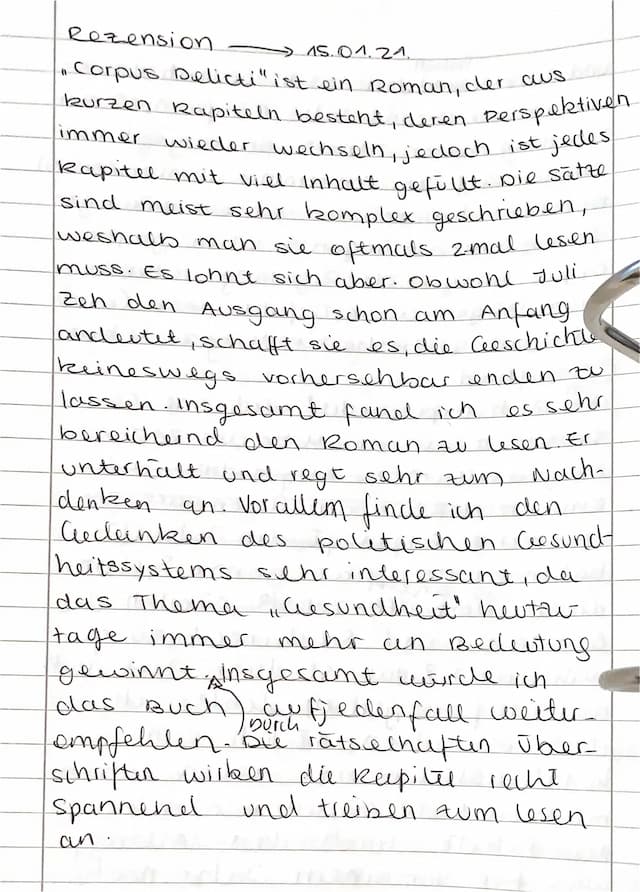 Rezension → 15.01.21.
„Corpus Delicti" ist ein Roman, der aus
kurzen Kapiteln besteht, deren Perspektiven
immer wieder wechseln, jedoch ist jedes
Kapitel mit viel Inhalt gefüllt. Die Sätze
sind meist sehr komplex geschrieben,
weshalb man sie oftmals 2mal lesen
muss. Es lohnt sich aber. Obwohl Juli
Zeh den Ausgang schon am Anfang
andeutet, schafft sie es, die Geschichte
keineswegs vorhersehbar enden zu
lassen. Insgesamt fand ich es sehr
bereichernd den Roman zu lesen. Er
unterhält und regt sehr zum Nach-
denken an. Vor allem finde ich den
Gedanken des politischen Gesund-
heitssystems sehr interessant, da
das Thema „Gesundheit" heutzu
tage immer mehr an Bedeutung
gewinnt. Insgesamt würde ich
das Buch aufjedenfall weiter-
empfehlen. Durch Die rätselhaften Über-
schriften wirken die Kapitel recht
spannend und treiben zum lesen
an.